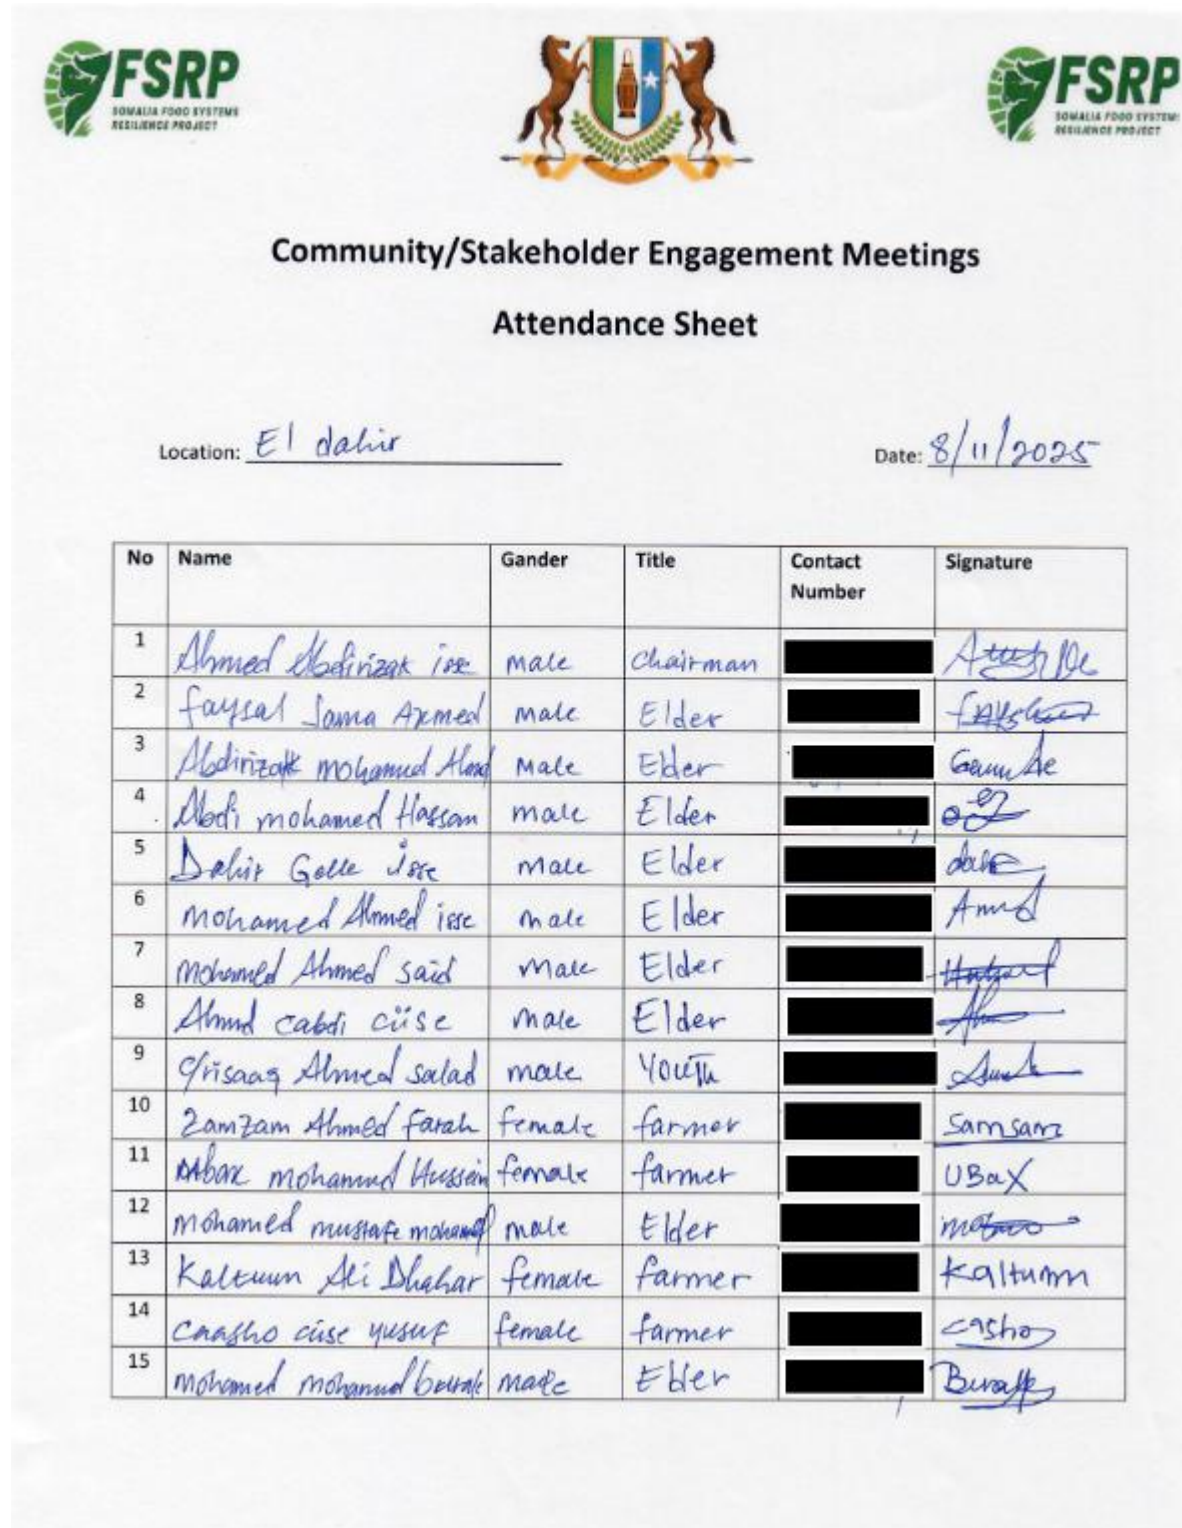 FSRP
SOMALIA FOOD SYSTEMS
RESILIENCE PROJECT
FSRP
SOMALIA FOOD SYSTEMS
RESILIENCE PROJECT
Community/Stakeholder Engagement Meetings
Attendance Sheet
Location: El dahir
Date: 8/11/2025
No Name Gander Title Contact Number Signature
1 Ahmed Abdirizak isse male chairman
2 faysal Jama Axmed male Elder
3 Abdirizak mohamed Ahmed Male Elder
4 Abdi mohamed Hassan male Elder
5 Dahir Gelle isse male Elder
6 mohamed Ahmed isse male Elder
7 mohamed Ahmed said male Elder
8 Ahmed cabdi ciise male Elder
9 C/risaaq Ahmed salad male Youth
10 Zamzam Ahmed farah female farmer Samsam
11 mohamed Hussein female farmer UBaX
12 mohamed mustafe mohamed male Elder
13 Kaltuun Ali Dhahar female farmer Kaltumn
14 Caasho ciise yusuf female farmer casho
15 mohamed mohamud male Elder